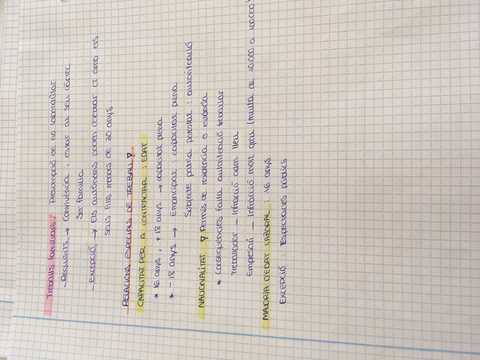 TREBALLS FAMILIARS / Presumpció de no laboralitat
- Requisits → Convivència : estar al seu càrrec
Ser família
- Excepció → Els autònoms poden contractar et amb els
seus fills menors de 30 anys
RELACIONS ESPECIALS DE TREBALL
CAPACITAT PER A CONTRACTAR : EDAT
* 16 anys , +18 anys → capacitat plena
* -18 anys → Emancipat : capacitat plena
Subjecte patria potestat : autorització
NACIONALITAT Permís de residència o estància
* Conseqüències falta autorització treballar
Treballador - Infracció adm. lleu
Empresari - Infracció molt greu (multa de 10.000 a 100.000)
MAJORIA D'EDAT LABORAL : 16 anys
Excepció : Espectacles públics